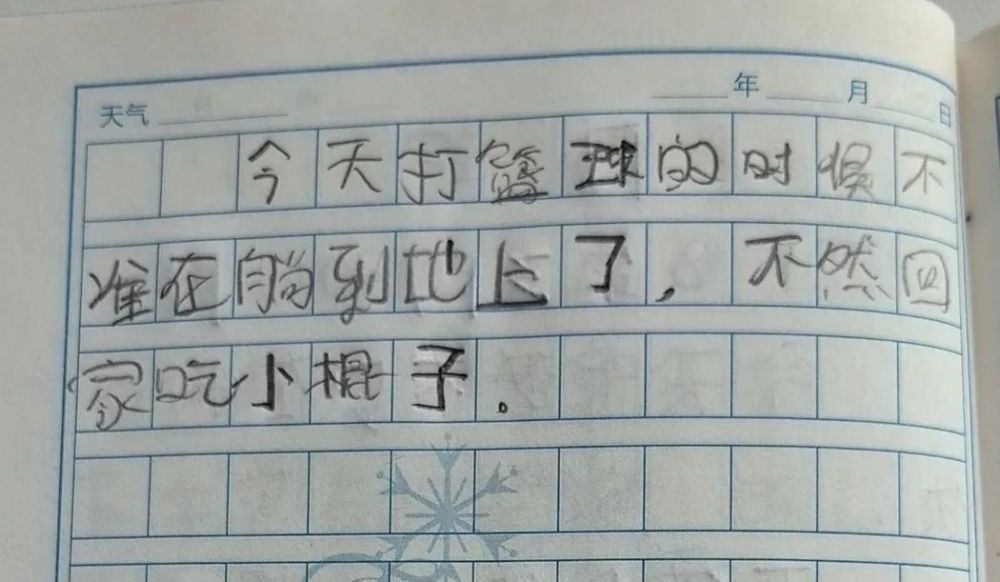 天气 年 月 日
今天打篮球的时候不
准在躺到地上了，不然回
家吃小棍子。